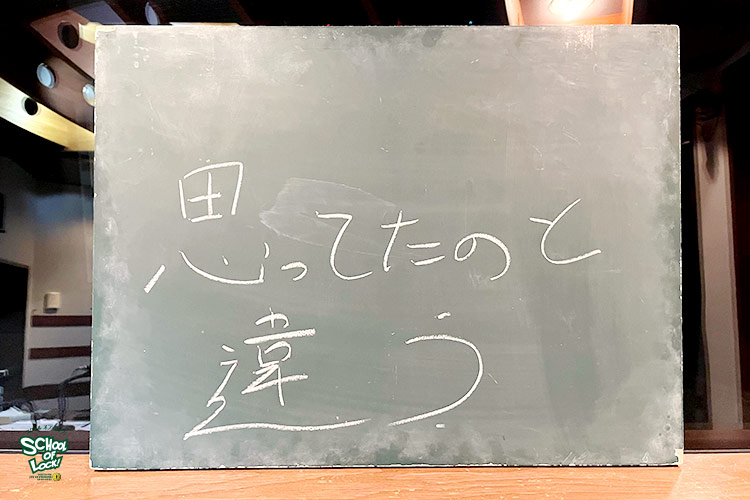 思ってたのと
違う
SCHOOL
OF
LOCK!